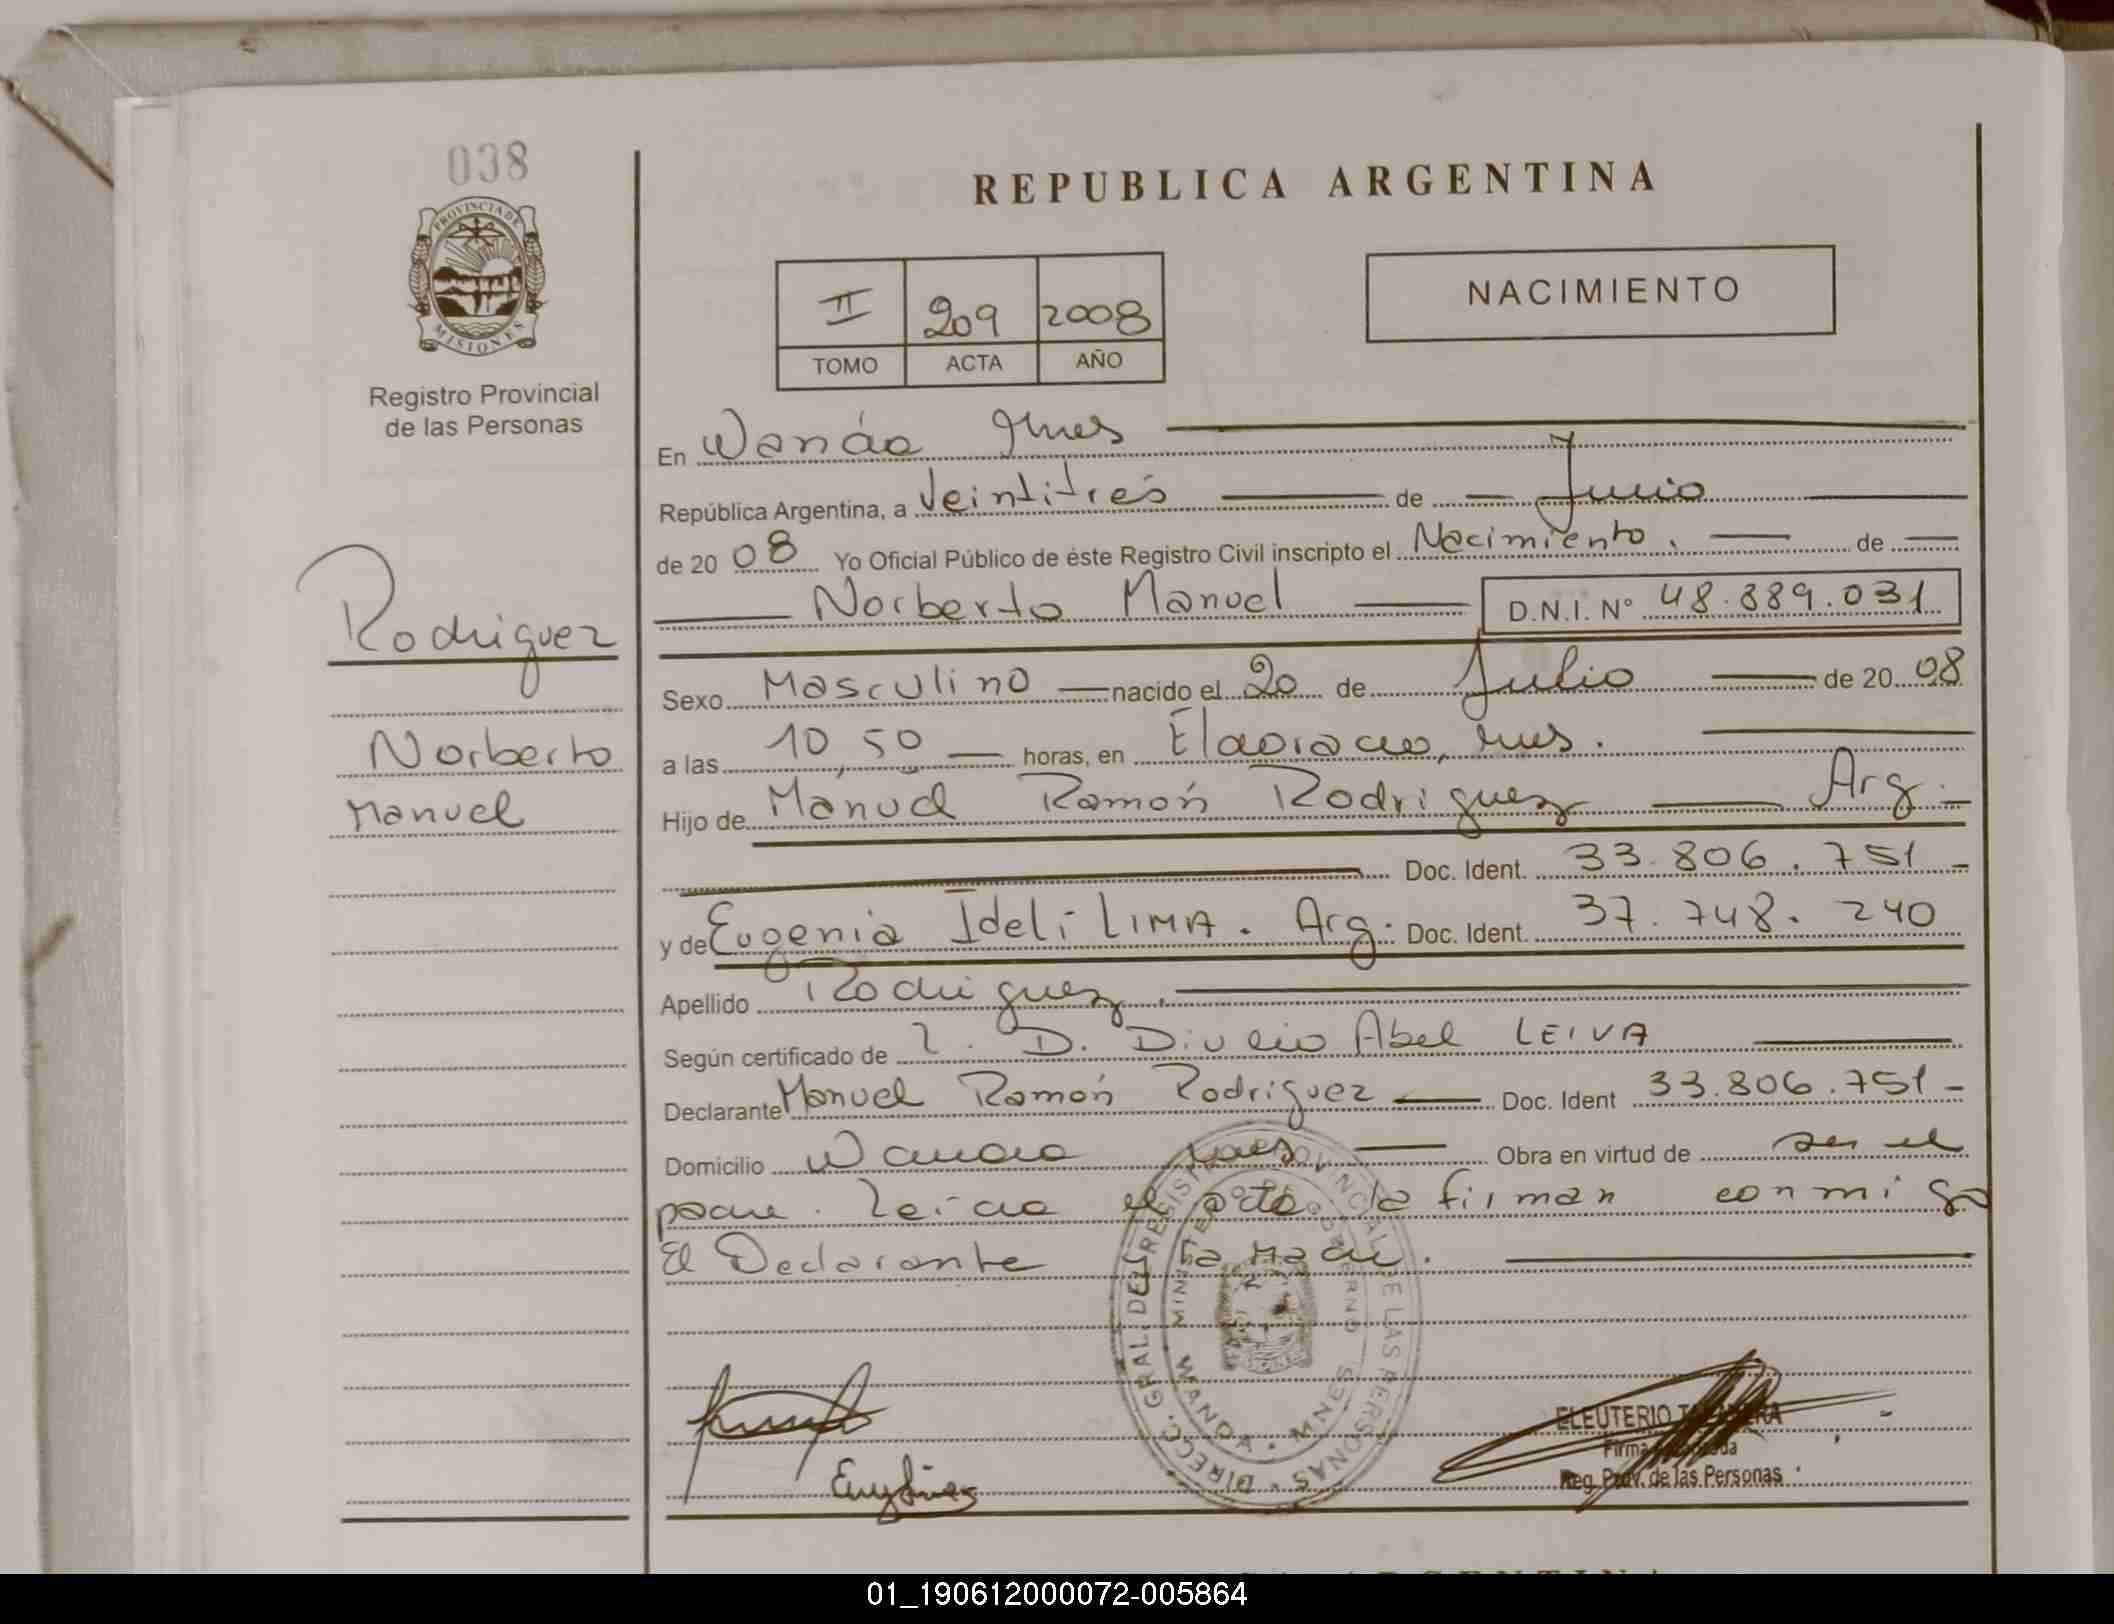 038
PROVINCIA DE
MISIONES
Registro Provincial
de las Personas
REPUBLICA ARGENTINA
II 209 2008
TOMO ACTA AÑO
NACIMIENTO
En Wanda Mnes
República Argentina, a Veintitrés de Junio
de 2008 Yo Oficial Público de éste Registro Civil inscripto el Nacimiento. de
Norberto Manuel D.N.I. Nº 48.889.031
Rodriguez
Norberto
Manuel
Sexo Masculino nacido el 20 de Julio de 2008
a las 10,50 horas, en Eldorado, mnes.
Hijo de Manuel Ramón Rodriguez Arg.
Doc. Ident. 33.806.751
y de Eugenia Ideli LIMA. Arg. Doc. Ident. 37.748.240
Apellido Rodriguez.
Según certificado de D. Abel LEIVA
Declarante Manuel Ramón Rodriguez Doc. Ident 33.806.751
Domicilio Wanda mnes, Obra en virtud de ser el
padre. Leída el acta la firman conmigo
El Declarante la Madre.
DIRECC. GRAL. DEL REGISTRO PROVINCIAL DE LAS PERSONAS
MINISTERIO DE GOBIERNO
WANDA - MNES
ELEUTERIO
Firma
Reg. Prov. de las Personas
01_190612000072-005864